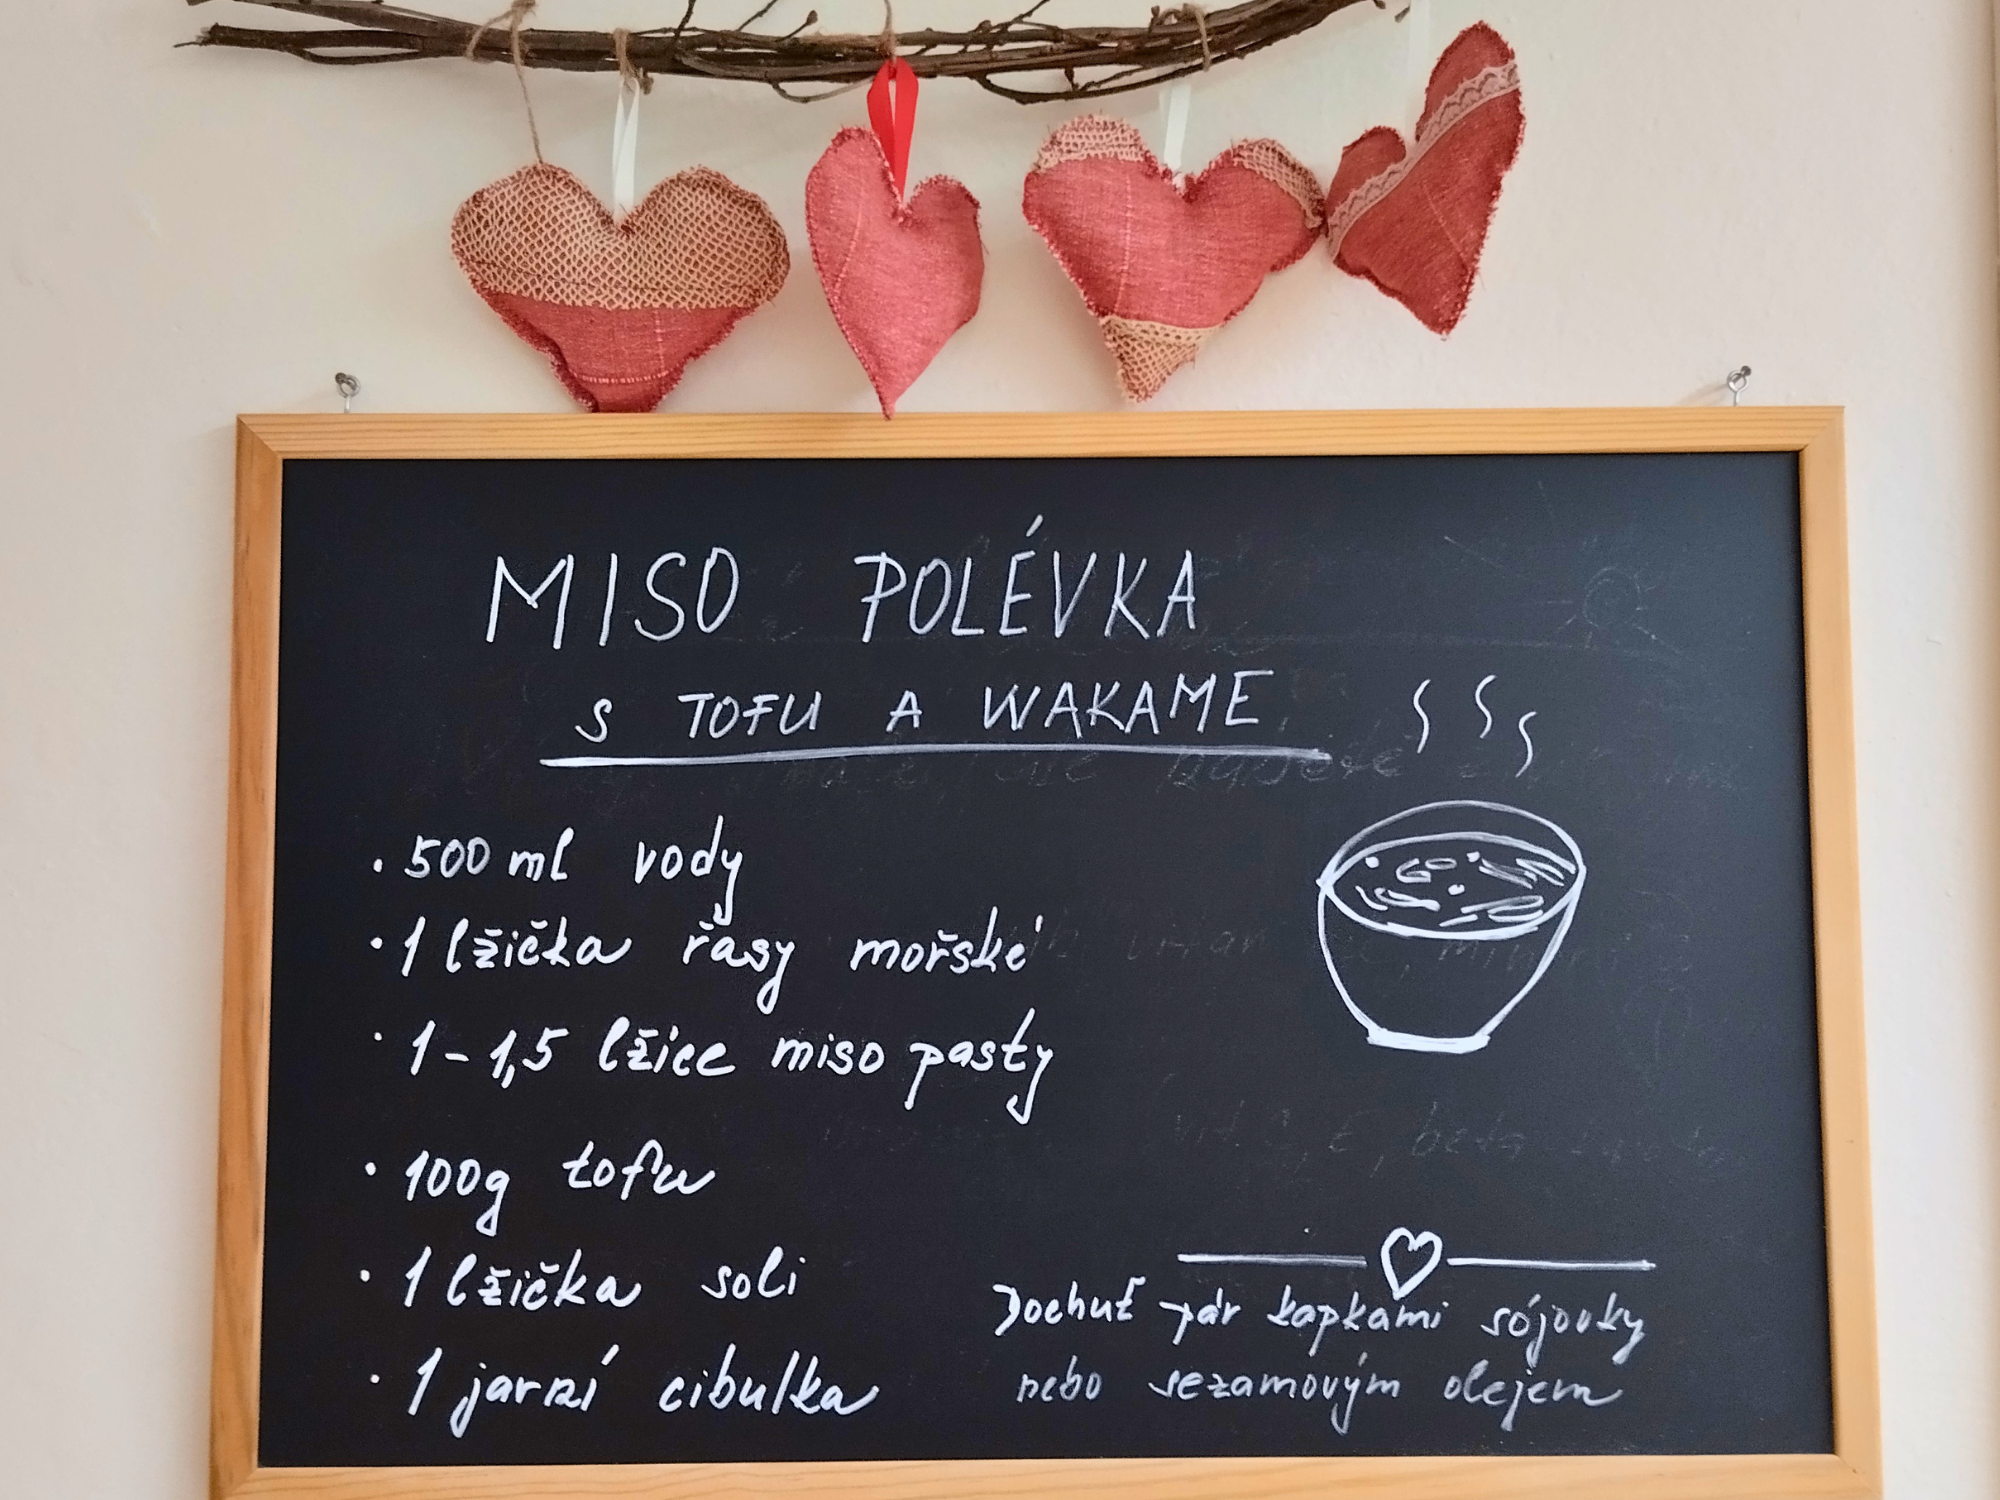 MISO POLÉVKA
S TOFU A WAKAME
• 500 ml vody
• 1 lžička řasy mořské
• 1-1,5 lžíce miso pasty
• 100g tofu
• 1 lžička soli
• 1 jarní cibulka
Dochuť pár kapkami sójovky
nebo sezamovým olejem